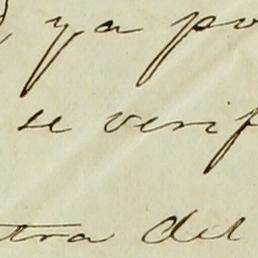 , ya po
se verif
tra del